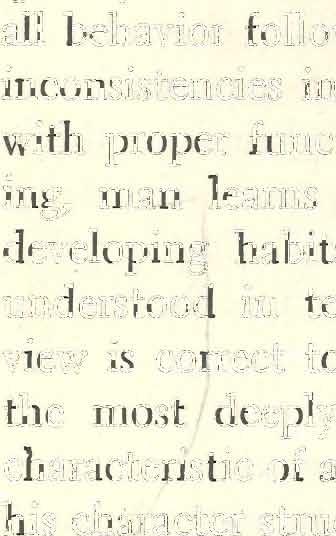 all behavior follo
inconsistencies in
with proper func
ing, man learns
developing habits
understood in te
view is correct to
the most deeply
characteristic of a
his character stru